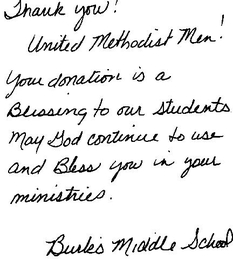 Thank you!
United Methodist Men!
Your donation is a
Blessing to our students
May God continue to use
and Bless you in your
ministries.
Burke's Middle School